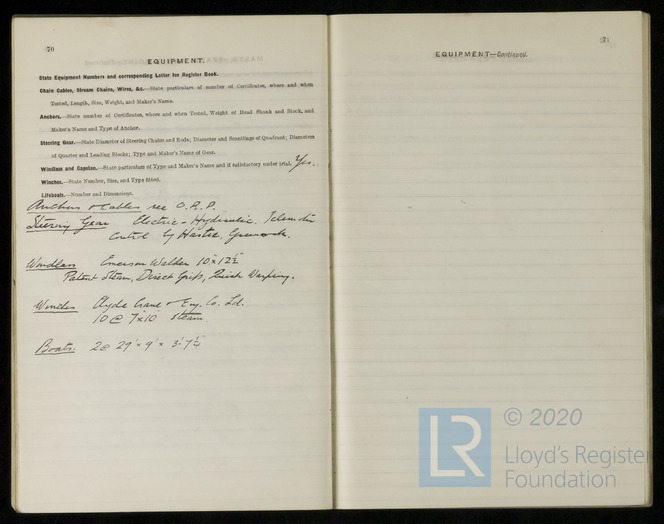 70
EQUIPMENT.
State Equipment Numbers and corresponding Letter for Register Book.
Chain Cables, Stream Chains, Wires, &c.—State particulars of number of Certificates, where and when
Tested, Length, Size, Weight, and Maker's Name.
Anchors.—State number of Certificates, where and when Tested, Weight of Head Shank and Stock, and
Maker's Name and Type of Anchor.
Steering Gear.—State Diameter of Steering Chains and Rods; Diameter and Scantlings of Quadrant; Diameters
of Quarter and Leading Blocks; Type and Maker's Name of Gear.
Windlass and Capstan.—State particulars of Type and Maker's Name and if satisfactory under trial. Yes.
Winches.—State Number, Size, and Type fitted.
Lifeboats.—Number and Dimensions.
Anchors & Cables see O.R.P.
Steering Gear Electric-Hydraulic. Telemotor
Control by Hastie, Greenock.
Windlass Emerson Walker 10" x 12½"
Patent Steam, Direct Grip, Quick Warping.
Winches Clyde Crane & Eng. Co. Ld.
10 @ 7" x 10" Steam
Boats. 2 @ 29' x 9' x
EQUIPMENT—Continued.
LR
© 2020
Lloyd's Register
Foundation